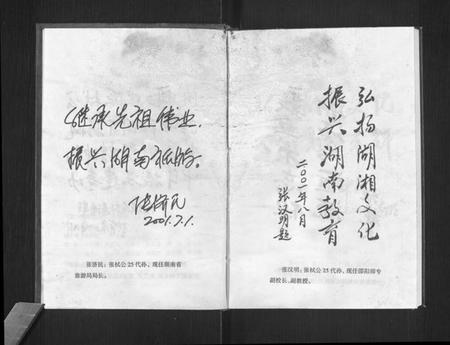 继承先祖伟业，
振兴湖南旅游。
张济民
2001.7.1.
张济民：张栻公25代孙、现任湖南省
旅游局局长。
弘扬湖湘文化
振兴湖南教育
二〇〇一年八月
张汉明题
张汉明：张栻公25代孙、现任邵阳师专
副校长、副教授。